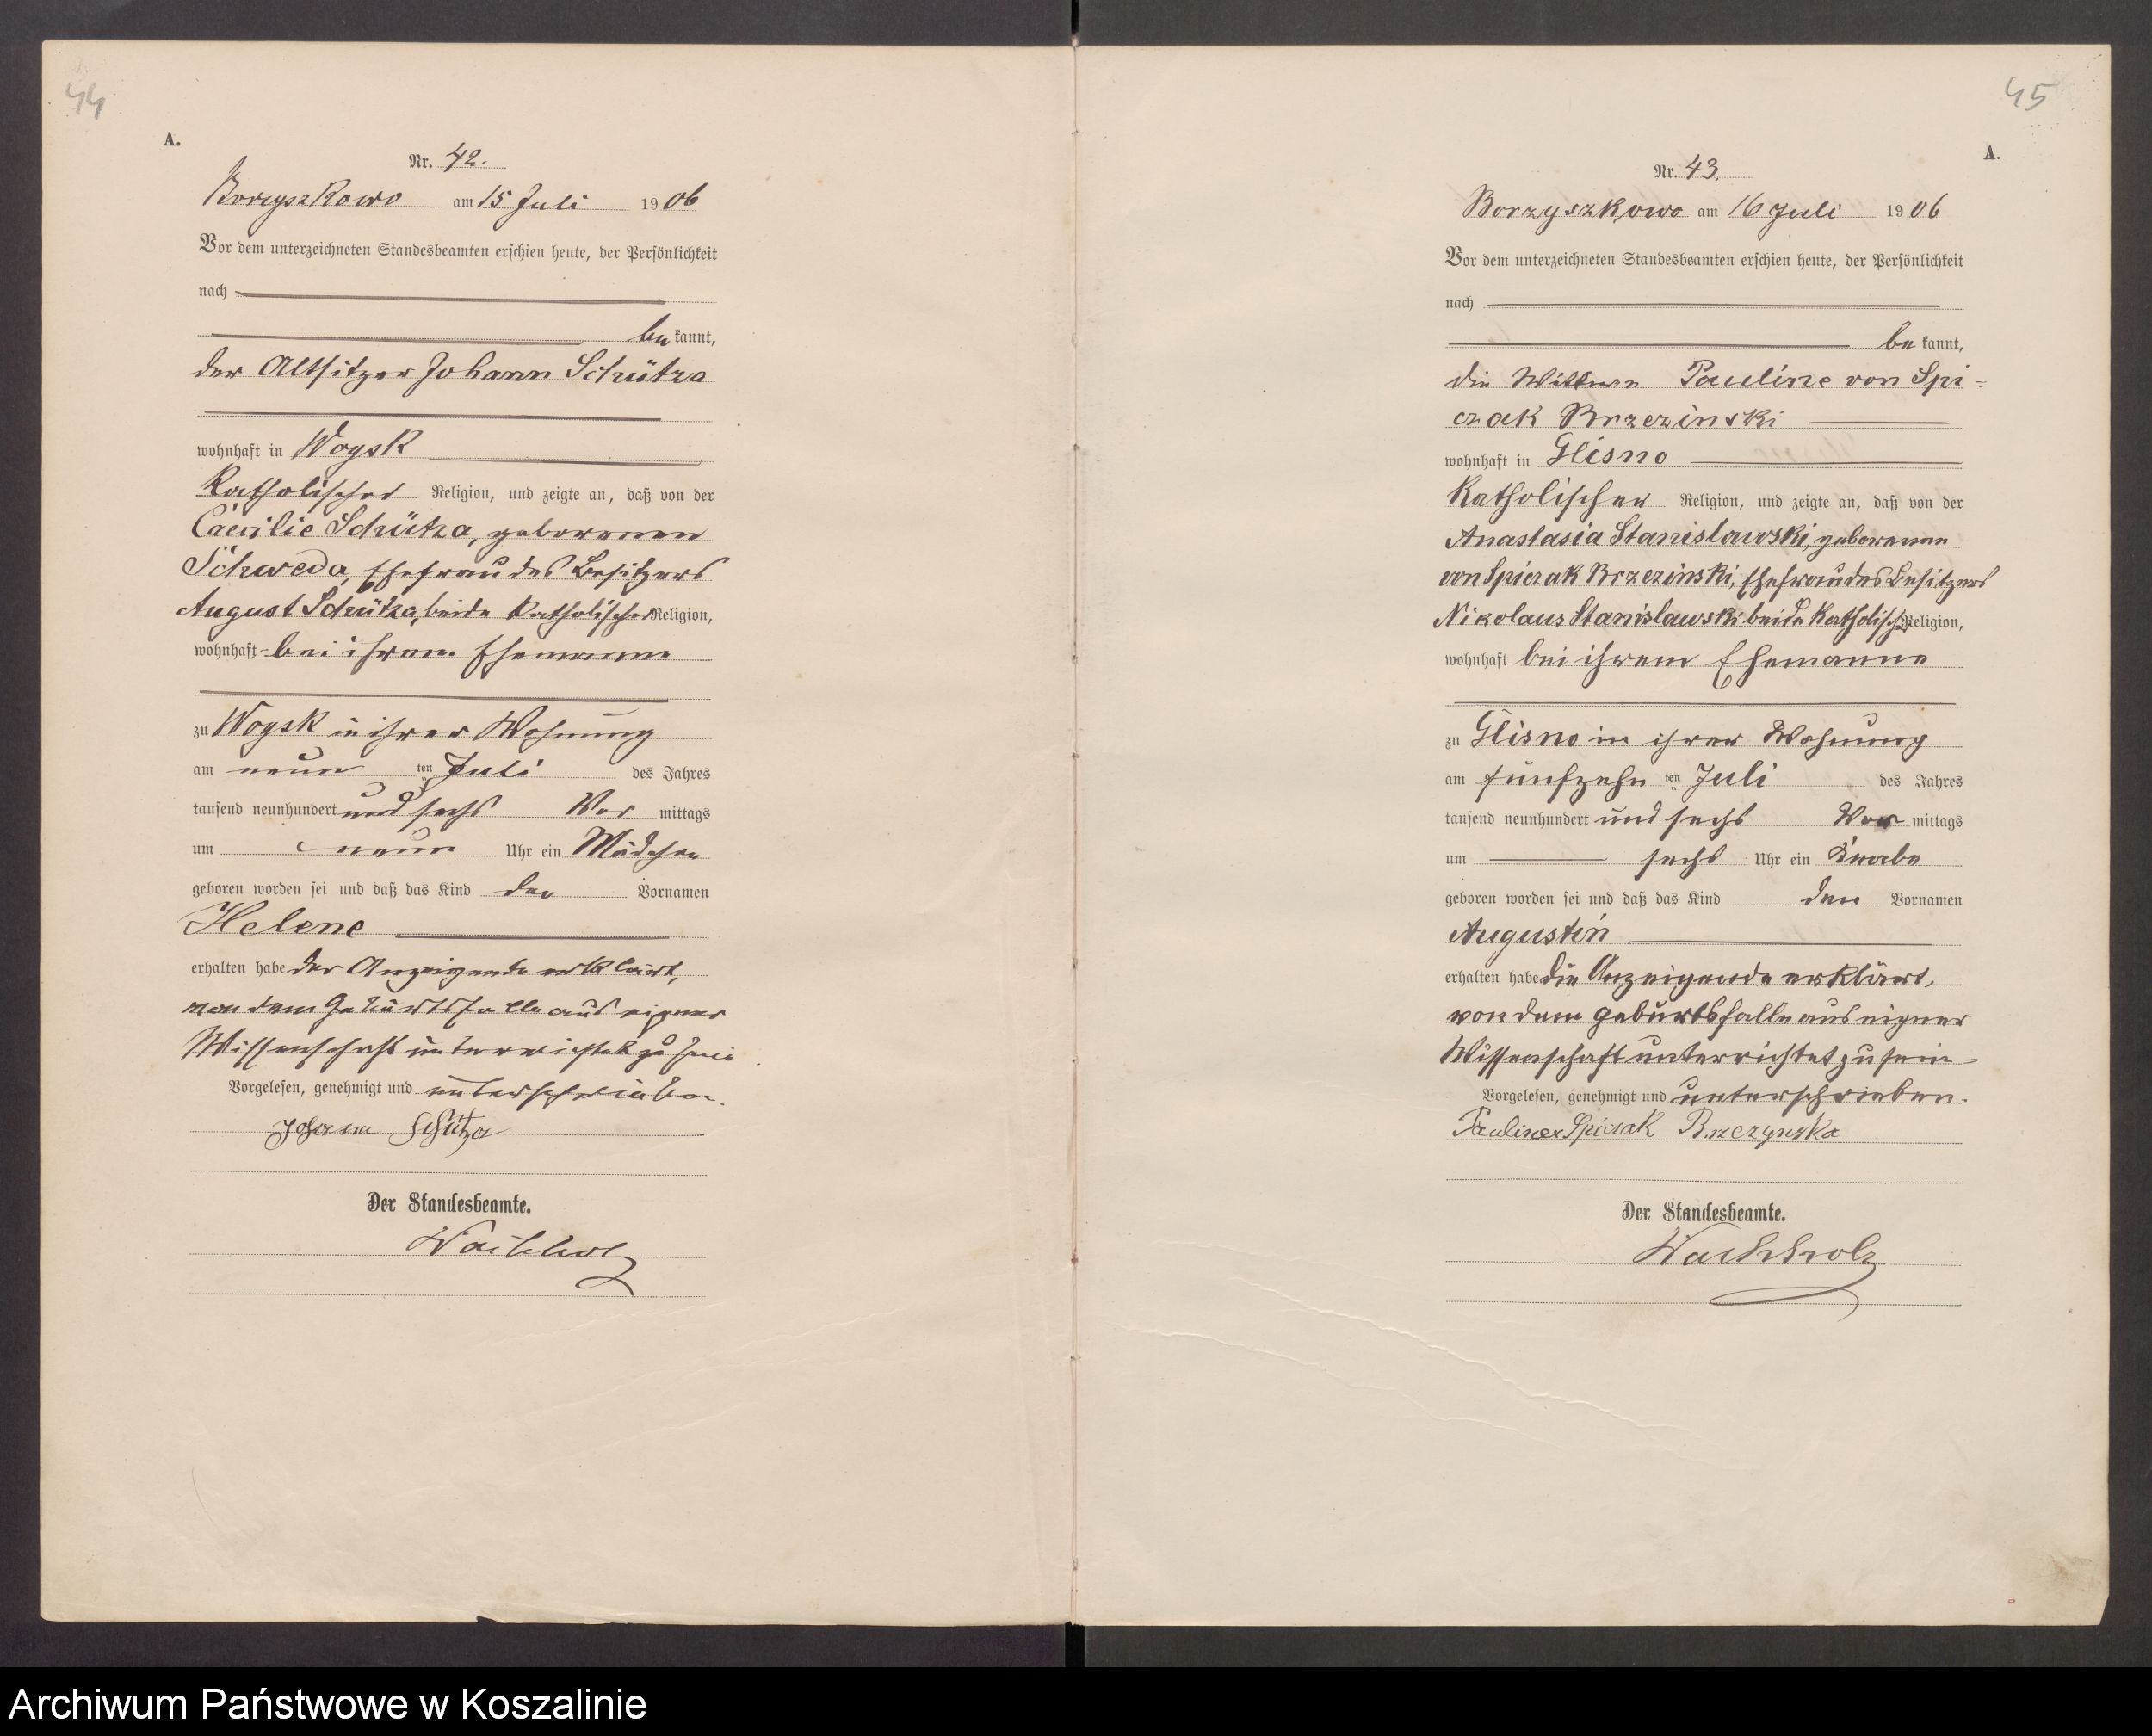 44
A.
Nr. 42.
Borzyszkowo am 15 Juli 1906
Vor dem unterzeichneten Standesbeamten erschien heute, der Persönlichkeit
nach
be kannt,
der Altsitzer Johann Schütza
wohnhaft in Woysk
katholischer Religion, und zeigte an, daß von der
Caecilie Schütza, geborenen
Schweda, Ehefrau des Besitzers
August Schütza, beide katholischer Religion,
wohnhaft bei ihrem Ehemanne
zu Woysk in ihrer Wohnung
am neun ten Juli des Jahres
tausend neunhundert und sechs Vor mittags
um neun Uhr ein Mädchen
geboren worden sei und daß das Kind den Vornamen
Helene
erhalten habe der Anzeigende erklärt,
von dem Geburtsfalle aus eigner
Wissenschaft unterrichtet zu sein
Vorgelesen, genehmigt und unterschrieben.
Johann Schütza
Der Standesbeamte.
Wachholz
45
A.
Nr. 43.
Borzyszkowo am 16 Juli 1906
Vor dem unterzeichneten Standesbeamten erschien heute, der Persönlichkeit
nach
be kannt,
die Wittwe Pauline von Spi-
czak Brzezinski
wohnhaft in Glisno
katholischer Religion, und zeigte an, daß von der
Anastasia Stanislawski, geborenen
von Spiczak Brzezinski, Ehefrau des Besitzers
Nikolaus Stanislawski beide katholisch Religion,
wohnhaft bei ihrem Ehemanne
zu Glisno in ihrer Wohnung
am fünfzehn ten Juli des Jahres
tausend neunhundert und sechs Vor mittags
um sechs Uhr ein Knabe
geboren worden sei und daß das Kind den Vornamen
Augustin
erhalten habe die Anzeigende erklärt,
von dem Geburtsfalle aus eigner
Wissenschaft unterrichtet zu sein
Vorgelesen, genehmigt und unterschrieben.
Pauline v Spiczak Brzezynska
Der Standesbeamte.
Wachholz
Archiwum Państwowe w Koszalinie